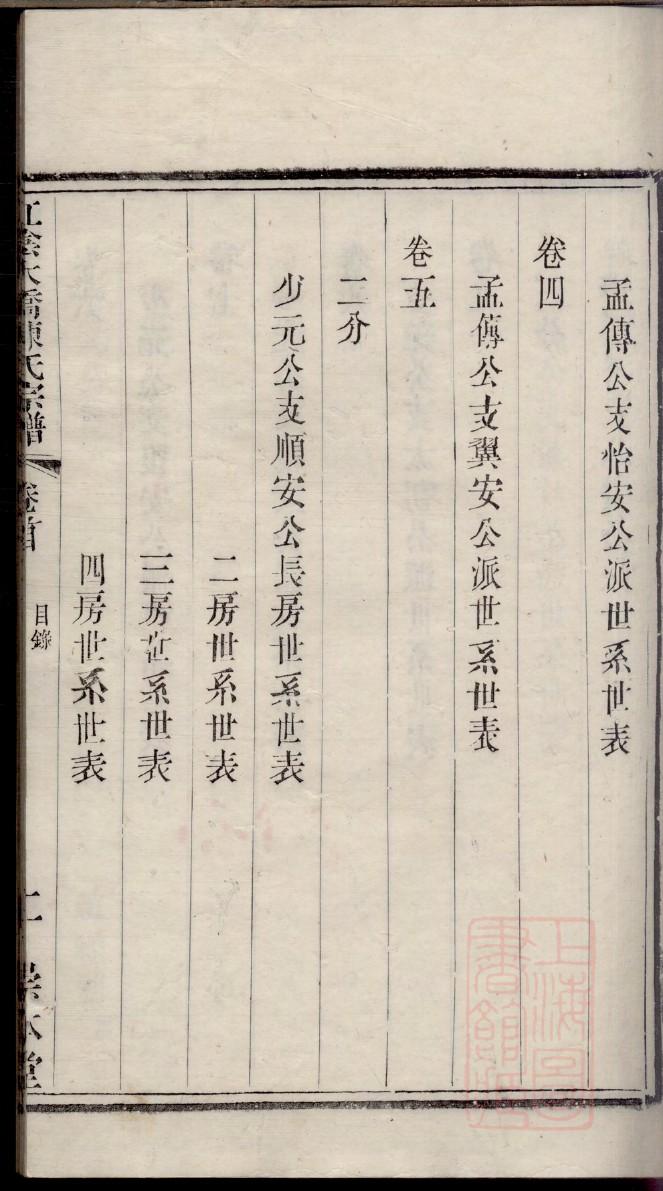 孟傳公支怡安公派世系世表
卷四
孟傳公支翼安公派世系世表
卷五
二分
少元公支順安公長房世系世表
二房世系世表
三房世系世表
四房世系世表
江陰大橋陳氏宗譜 卷首 目錄 二 崇本堂
上海圖書館藏